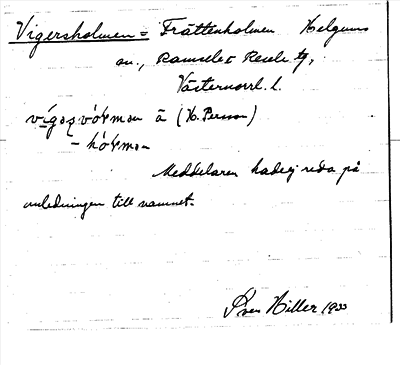 Vigersholmen = Trättenholmen Helgums
sn., Ramsele o Resele tg,
Västernorrl. l.
ä (H. Persson)
Meddelaren hade ej reda på
anledningen till namnet.
Sven Hiller 1933